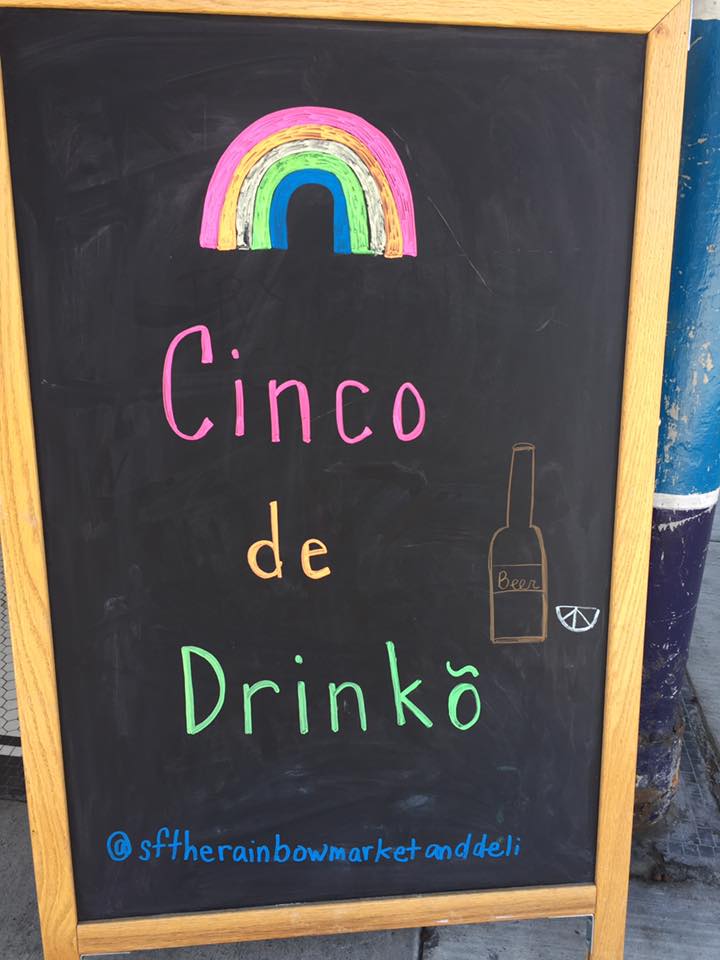 Cinco
de
Drinkõ
Beer
@sftherainbowmarketanddeli